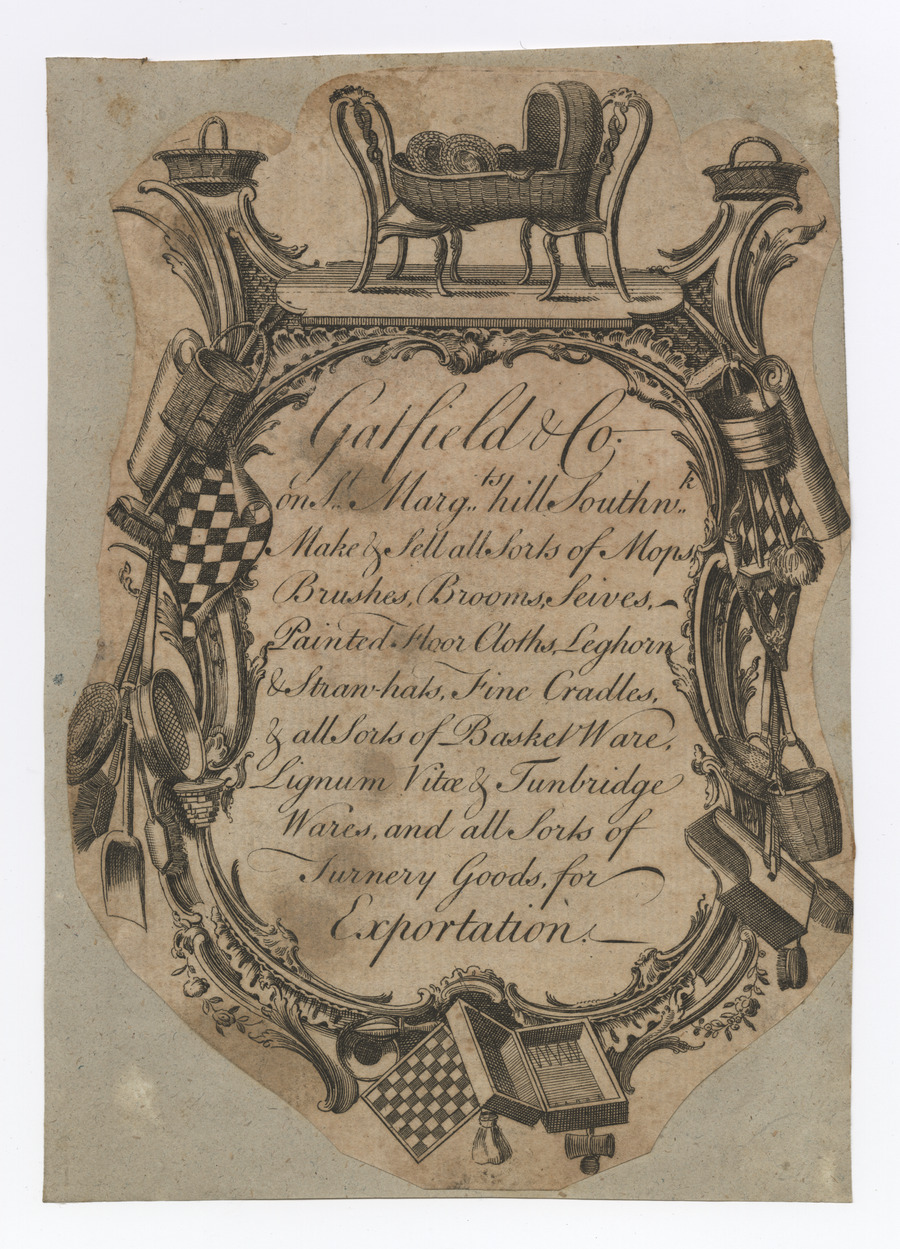 Gatfield & Co.
on St. Marg.ts hill Southw.k
Make & Sell all Sorts of Mops,
Brushes, Brooms, Seives,
Painted Floor Cloths, Leghorn
& Straw-hats, Fine Cradles,
& all Sorts of Basket Ware,
Lignum Vitæ & Tunbridge
Wares, and all Sorts of
Turnery Goods, for
Exportation.